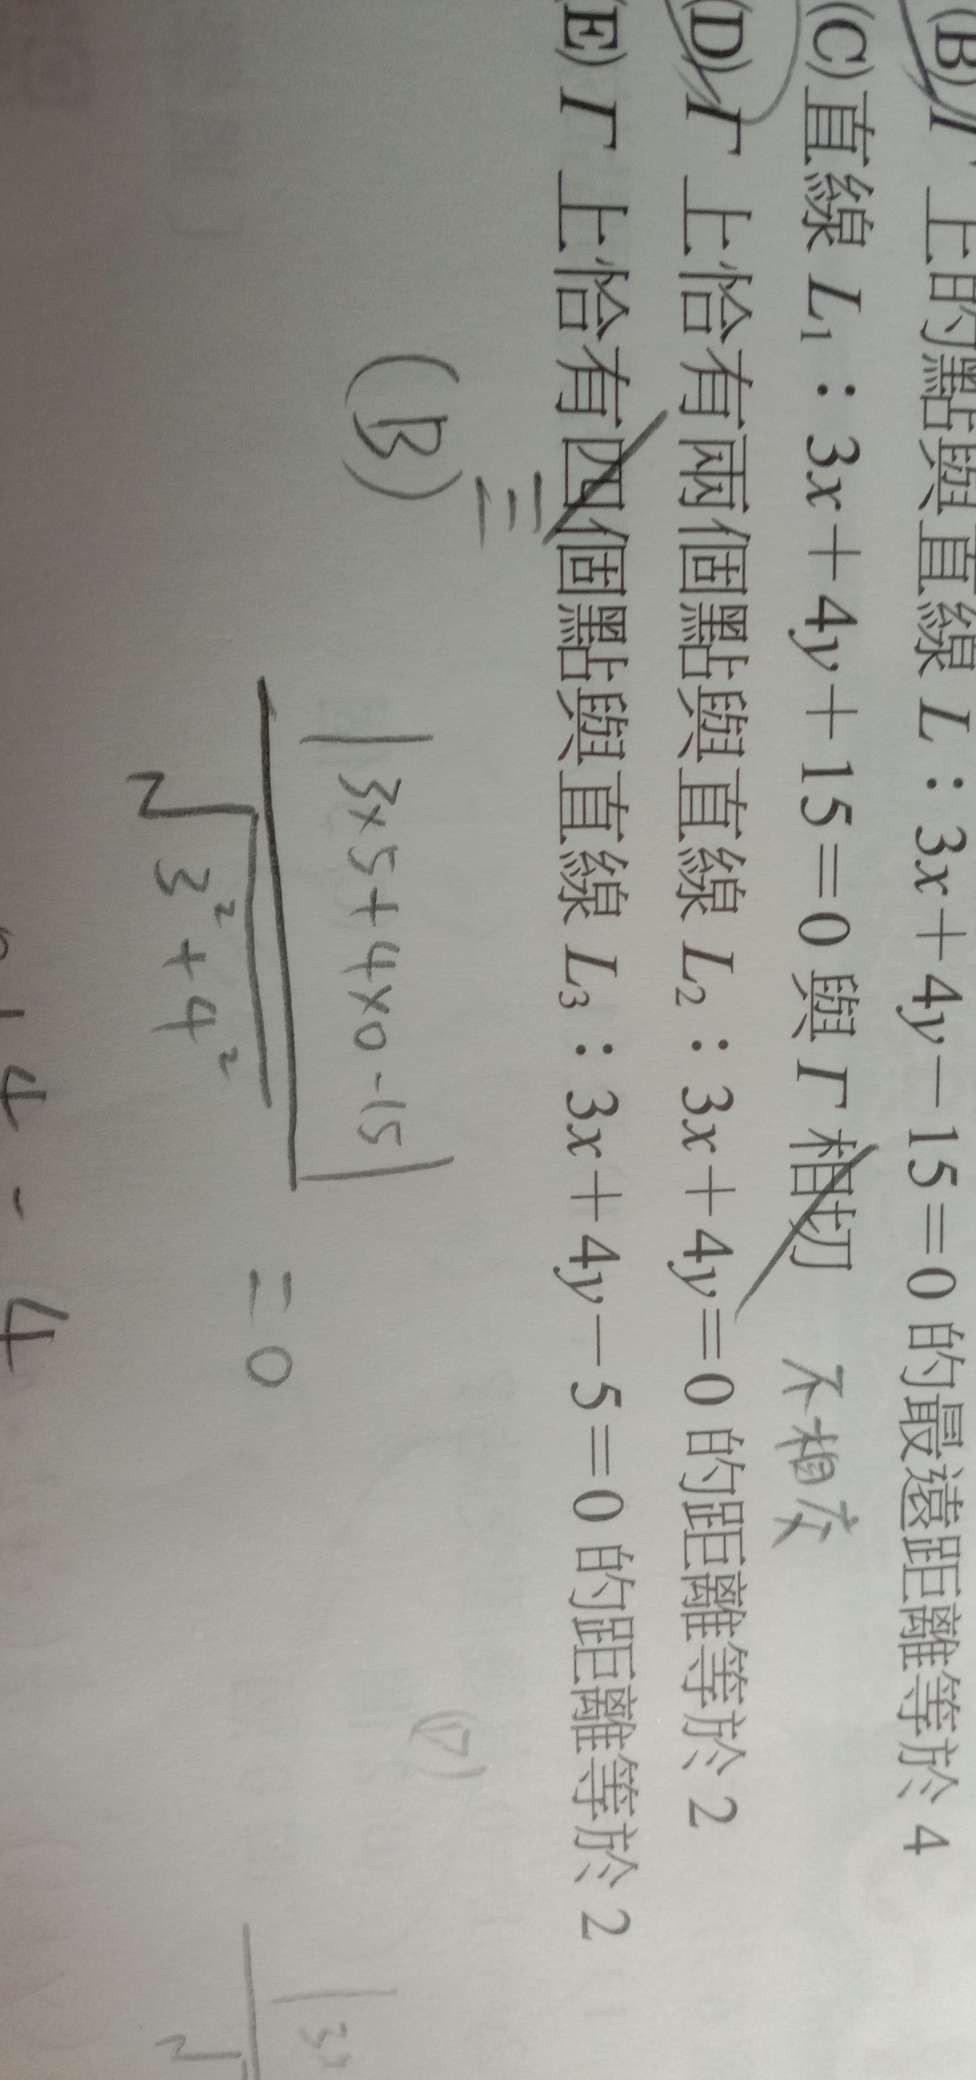 (B) Γ 上的點與直線 L：3x＋4y－15＝0 的最遠距離等於 4
(C) 直線 L₁：3x＋4y＋15＝0 與 Γ 相切 不相交
(D) Γ 上恰有兩個點與直線 L₂：3x＋4y＝0 的距離等於 2
(E) Γ 上恰有四個點與直線 L₃：3x＋4y－5＝0 的距離等於 2
三
(B) |3×5+4×0-15| / √(3²+4²) = 0
(D)
|3x
√
4 - 4